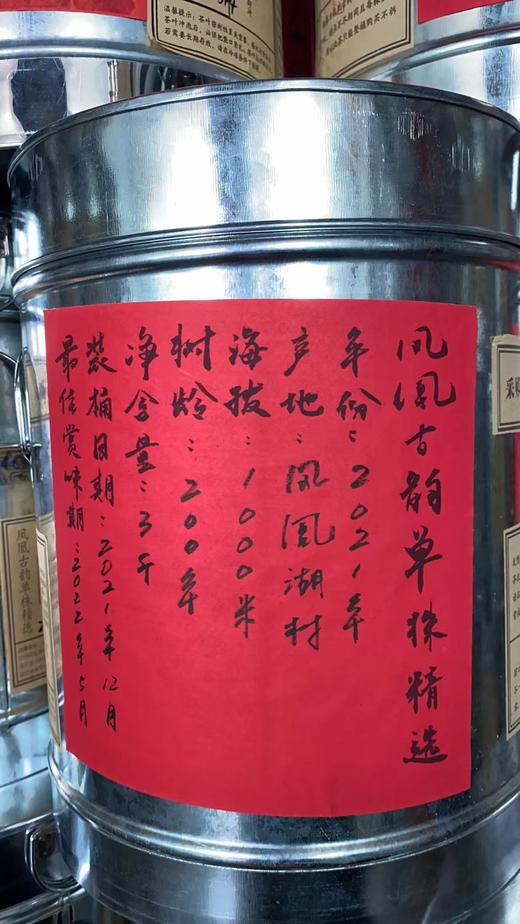 凤凰古韵单株精选
年份：2021年
产地：凤凰湖村
海拔：1000米
树龄：200年
净含量：3斤
装桶日期：2021年12月
最佳赏味期：2022年5月
凤凰古韵单株精选